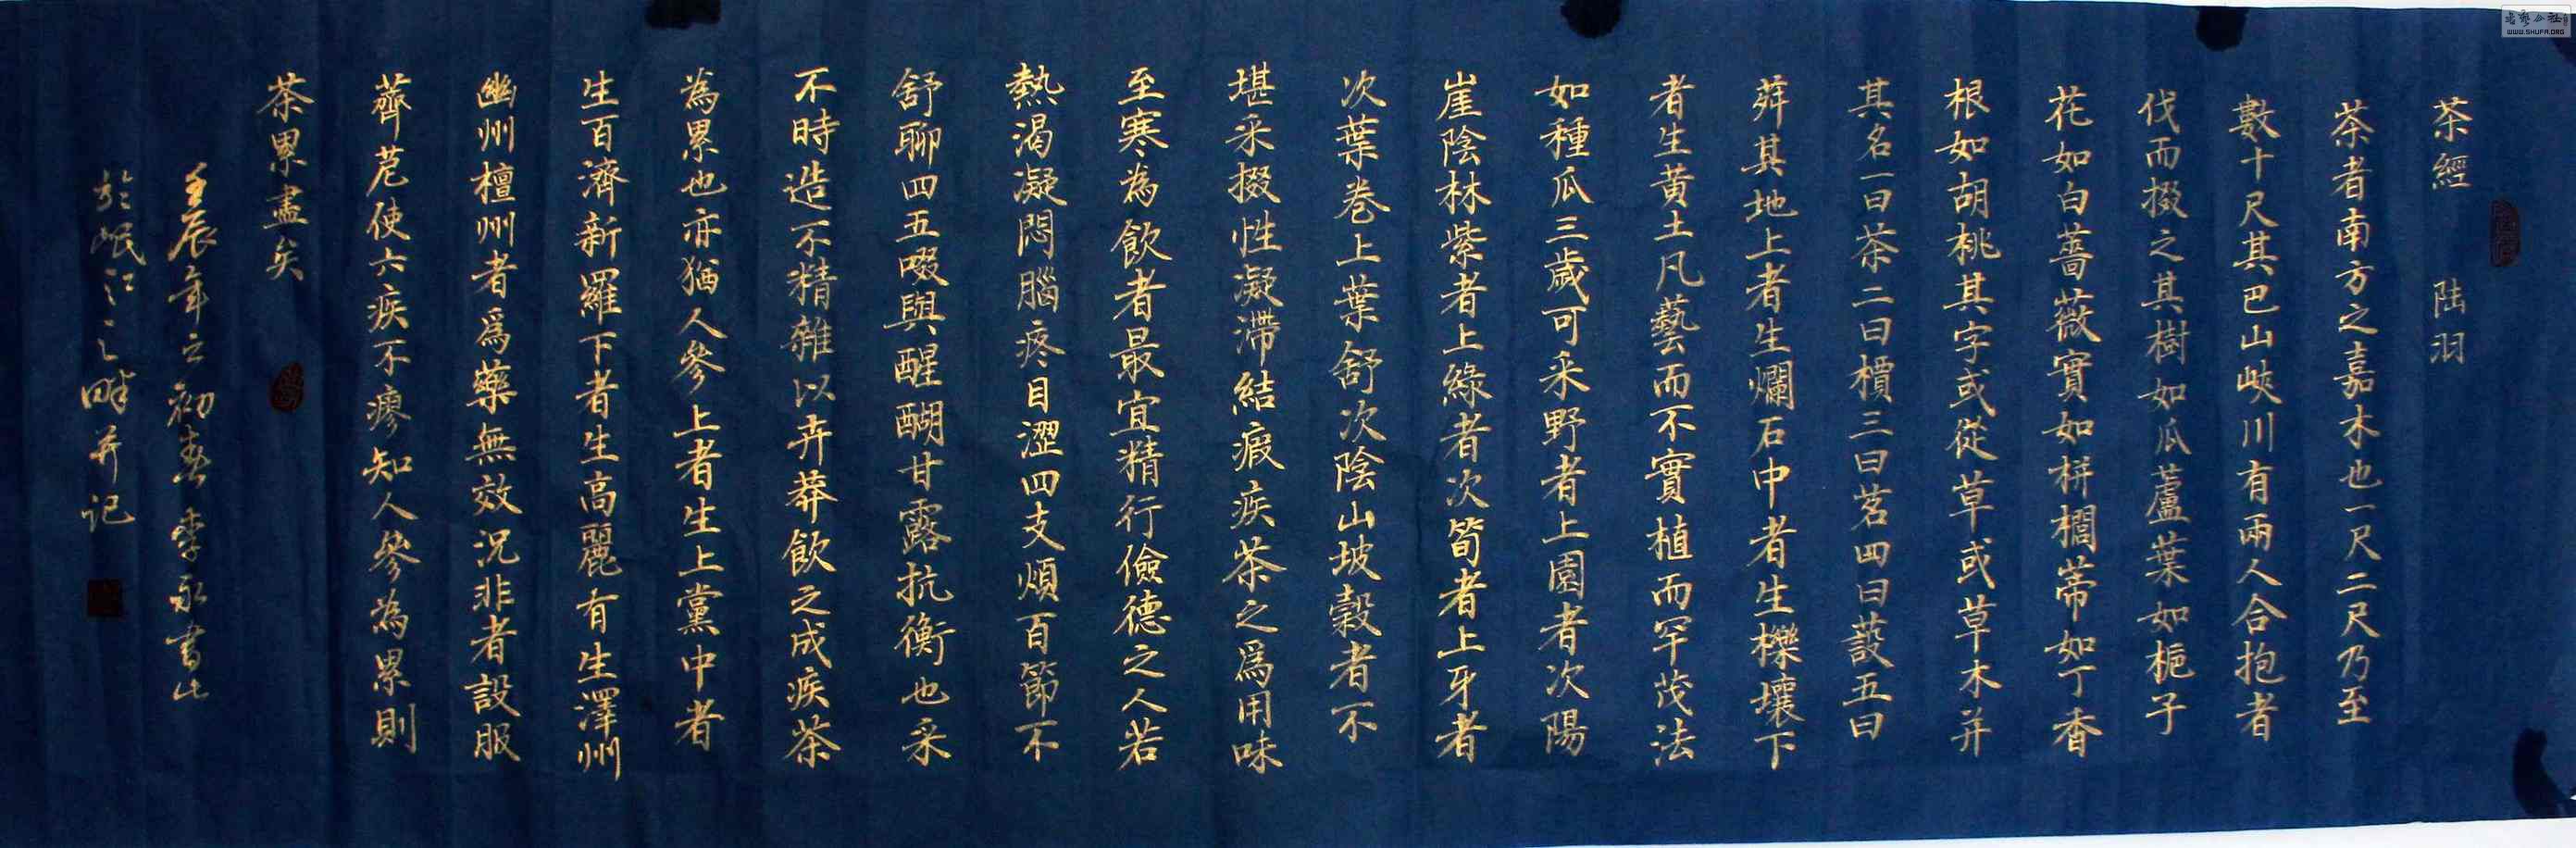 茶經 陆羽
茶者南方之嘉木也一尺二尺乃至
數十尺其巴山峽川有兩人合抱者
伐而掇之其樹如瓜蘆葉如梔子
花如白薔薇實如栟櫚蒂如丁香
根如胡桃其字或從草或草木并
其名一曰茶二曰檟三曰茗四曰蔎五曰
荈其地上者生爛石中者生櫟壤下
者生黃土凡藝而不實植而罕茂法
如種瓜三歲可采野者上園者次陽
崖陰林紫者上綠者次筍者上牙者
次葉卷上葉舒次陰山坡穀者不
堪采掇性凝滯結瘕疾茶之爲用味
至寒為飲者最宜精行儉德之人若
熱渴凝悶腦疼目澀四支煩百節不
舒聊四五啜與醒醐甘露抗衡也采
不時造不精雜以卉莽飲之成疾茶
為累也亦猶人參上者生上黨中者
生百濟新羅下者生高麗有生澤州
幽州檀州者爲藥無效況非者設服
薺苨使六疾不瘳知人參為累則
茶累盡矣
壬辰年之初春李永書此
於岷江之畔并记
WWW.SHUFA.ORG